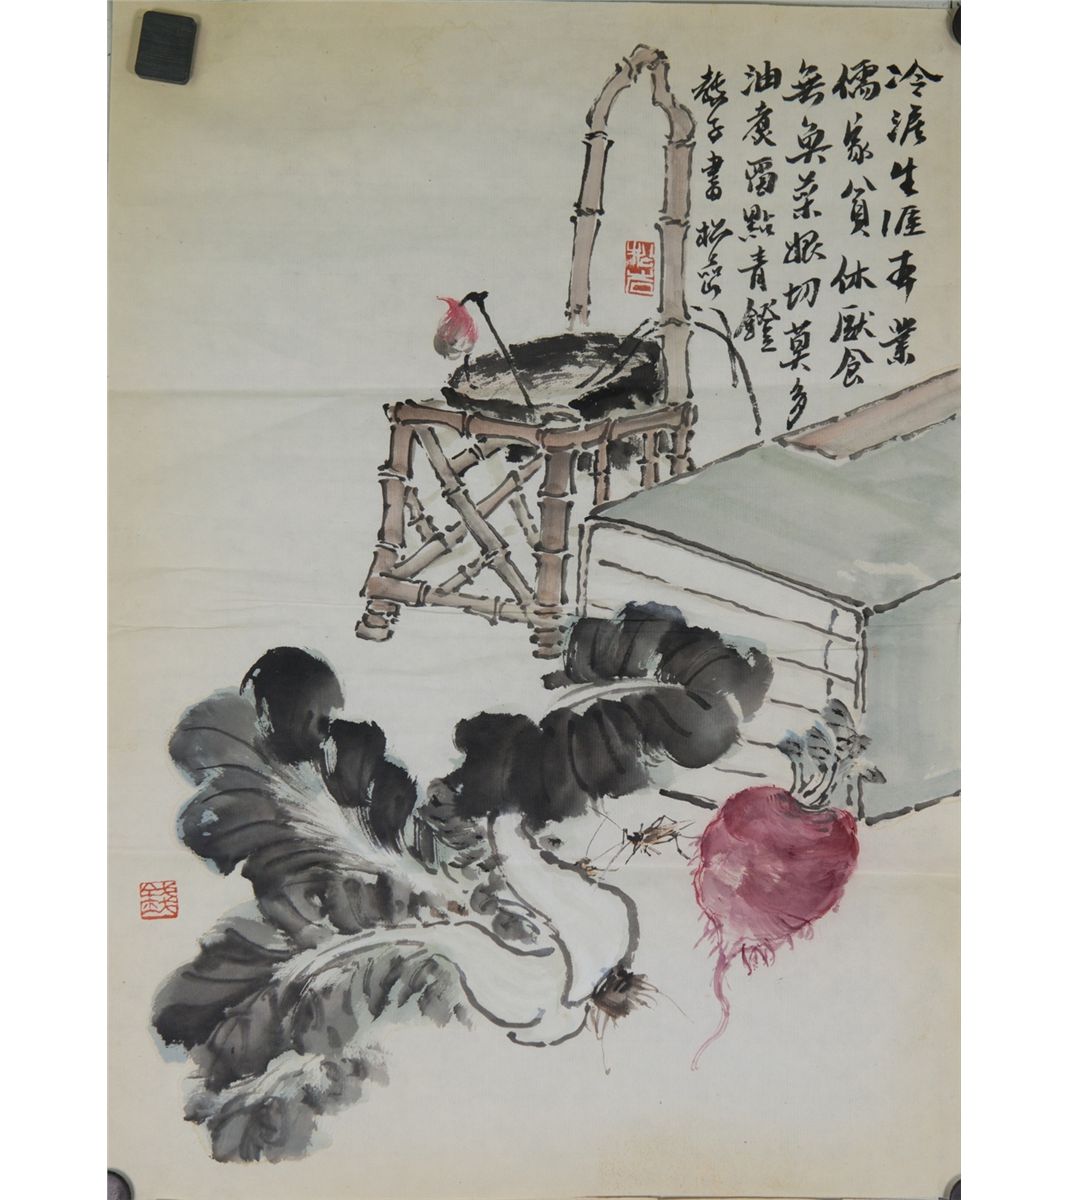 冷淡生涯本業
儒家貧休厭食
無魚菜根切莫多
油煮留點青鐙
教子書 松嵒
錢